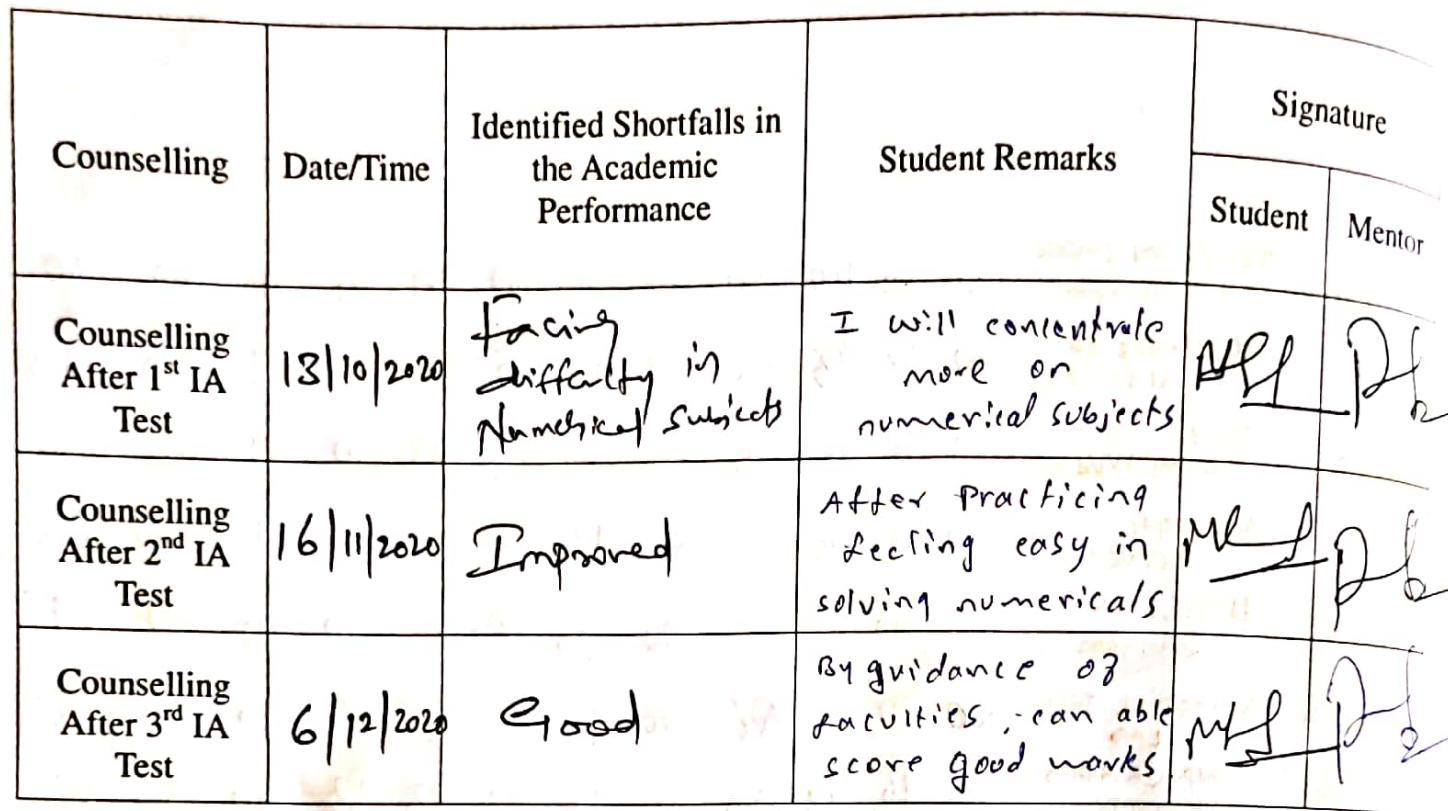 Counselling
Date/Time
Identified Shortfalls in
the Academic
Performance
Student Remarks
Signature
Student
Mentor
Counselling
After 1st IA
Test
13/10/2020
Facing
diffalty in
Numerical Subjects
I will concentrate
more on
numerical subjects
Counselling
After 2nd IA
Test
16/11/2020
Improved
After Practicing
feeling easy in
solving numericals
Counselling
After 3rd IA
Test
6/12/2020
Good
By guidance of
faculties, can able
score good marks